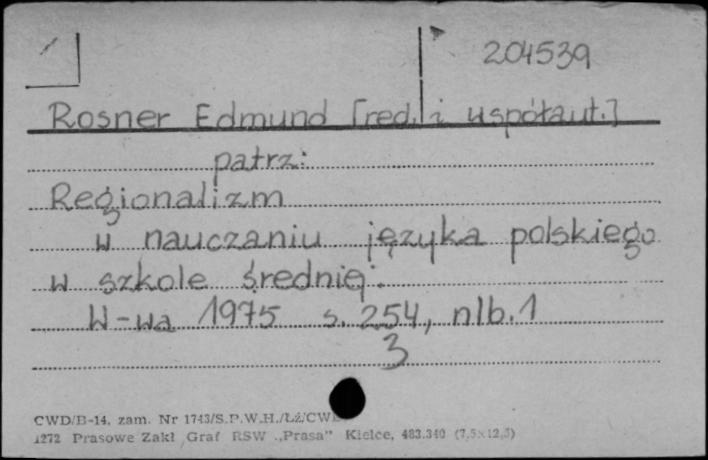 204539
Rosner Edmund [red. i współaut.]
patrz:
Regionalizm
w nauczaniu języka polskiego
w szkole średniej.
W-wa 1975 s. 254, nlb. 1
3
CWD/B-14. zam. Nr 1743/S.P.W.H./Łź/CWD
1272 Prasowe Zakł Graf RSW „Prasa" Kielce, 483.340 (7,5x12,5)